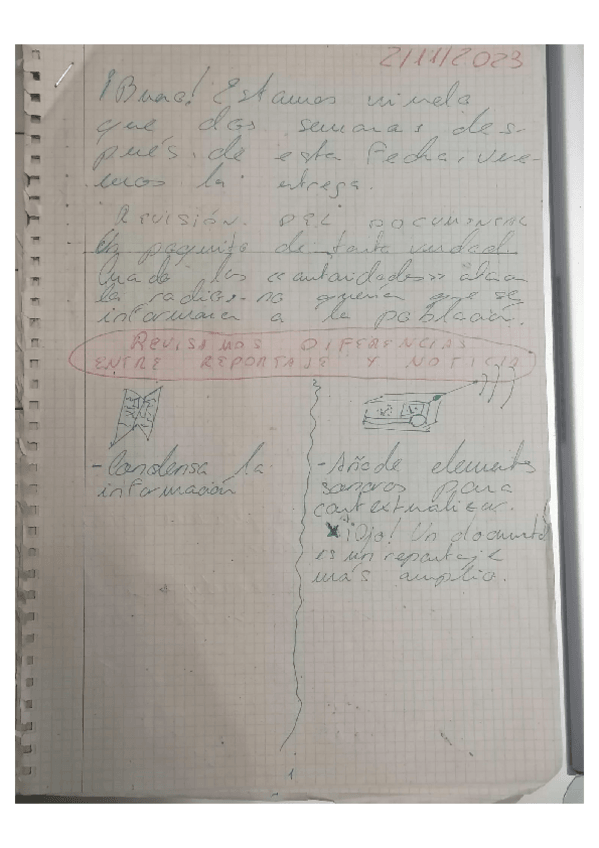 2/11/2023
¡Bueno! Estamos
que dos semanas des-
pués de esta fecha, vere-
mos la entrega.
REVISIÓN DEL DOCUMENTAL
Un poquito de tanta verdad.
Cuando las «autoridades» atacan
la radio, no querían que se
informara a la población.
REVISAMOS DIFERENCIAS
ENTRE REPORTAJE Y NOTICIA
- Condensa la
información
- Añade elementos
sonoros para
contextualizar.
¡Ojo! Un documental
es un reportaje
más amplio.
1